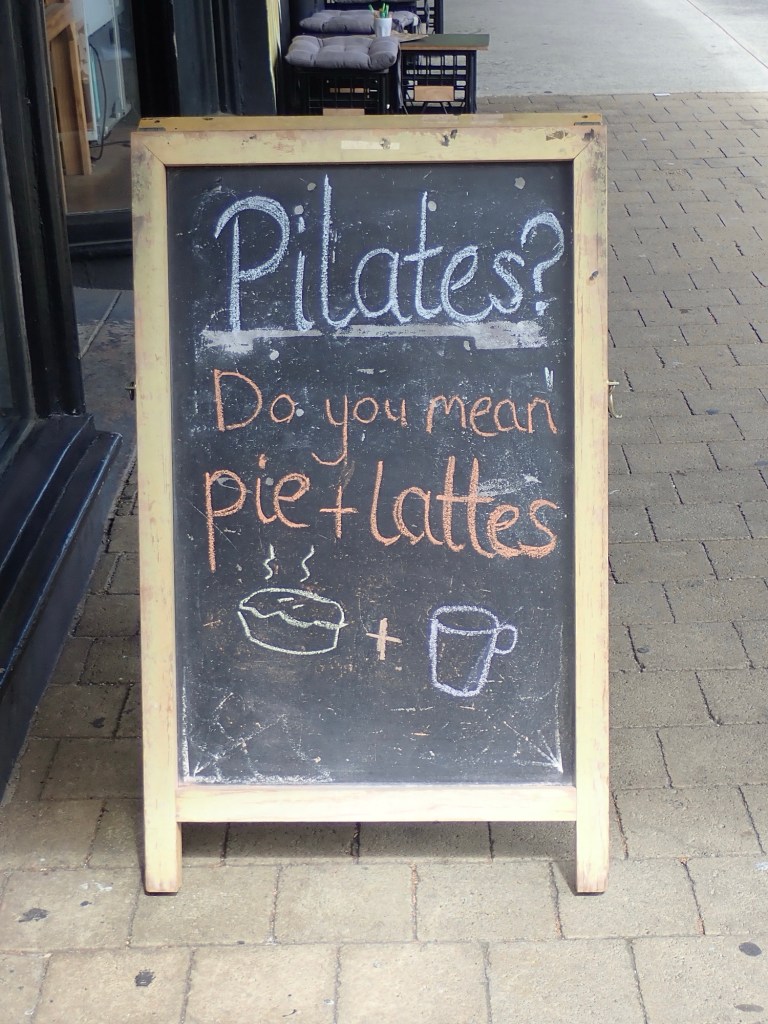 Pilates?
Do you mean
pie + lattes
+